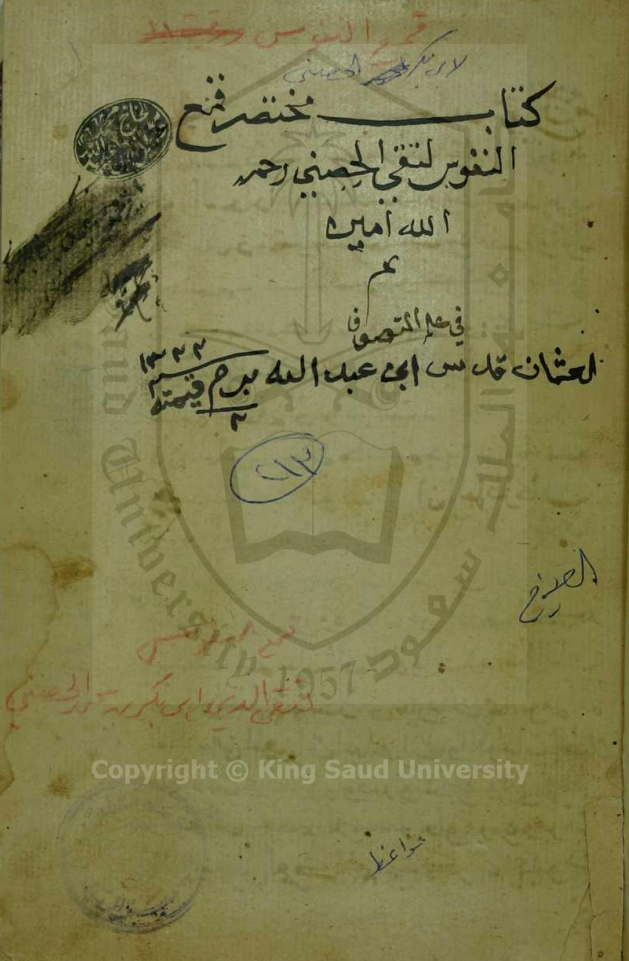 قمع النفوس
لابي بكر الحصني
كتاب مختصر قمع
النفوس لتقي الحصني رحمه
الله امين
م
في علم التصوف
لعثمان قدس ابي عبد الله
١٣٢٢
قيمته
٢
٢١٣
قمع النفوس
لتقي الدين ابي بكر بن محمد الحصني
جامعة الملك سعود
King Saud University
1957
Copyright © King Saud University
مواعظ